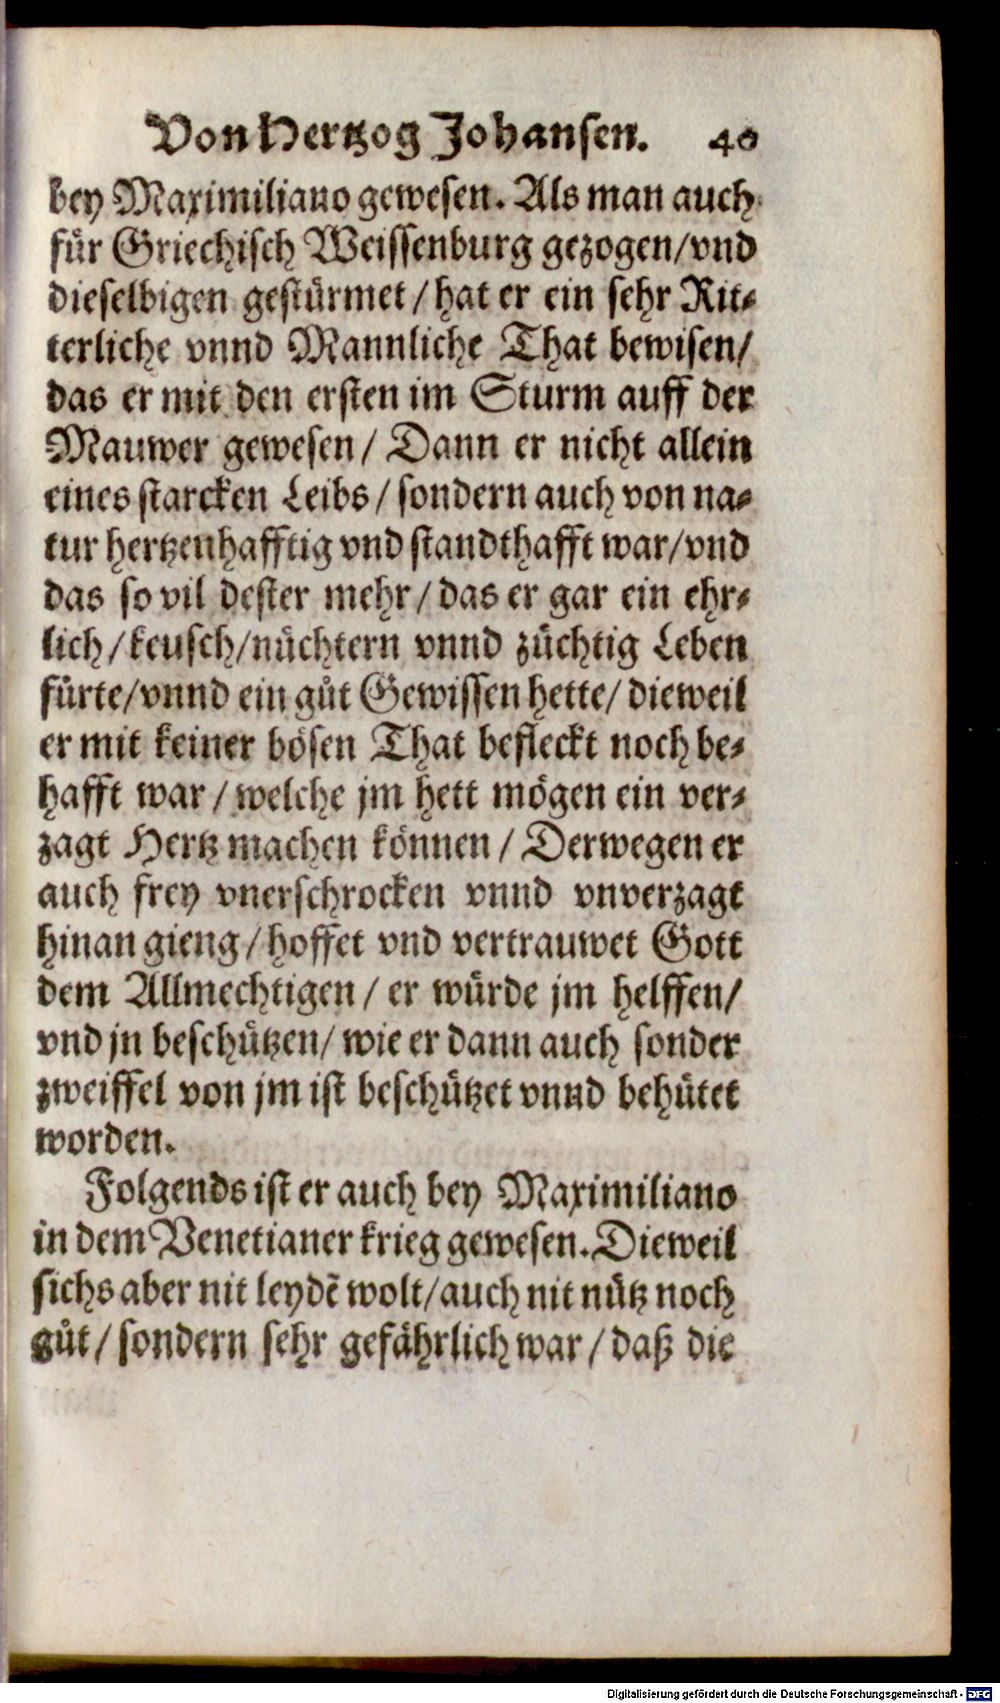 Von Hertzog Johansen. 40
bey Maximiliano gewesen. Als man auch
für Griechisch Weissenburg gezogen/vnd
dieselbigen gestürmet/hat er ein sehr Rit⸗
terliche vnnd Mannliche That bewisen/
das er mit den ersten im Sturm auff der
Mauwer gewesen/ Dann er nicht allein
eines starcken Leibs/sondern auch von na⸗
tur hertzenhafftig vnd standthafft war/vnd
das so vil dester mehr/das er gar ein ehr⸗
lich/keusch/nüchtern vnnd züchtig Leben
fürte/vnnd ein gůt Gewissen hette/dieweil
er mit keiner bösen That befleckt noch be⸗
hafft war/welche jm hett mögen ein ver⸗
zagt Hertz machen können/Derwegen er
auch frey vnerschrocken vnnd vnverzagt
hinan gieng/hoffet vnd vertrauwet Gott
dem Allmechtigen/er würde jm helffen/
vnd jn beschützen/wie er dann auch sonder
zweiffel von jm ist beschützet vnnd behütet
worden.
Folgends ist er auch bey Maximiliano
in dem Venetianer krieg gewesen. Dieweil
sichs aber nit leydē wolt/auch nit nütz noch
gůt/sondern sehr gefährlich war/daß die
Digitalisierung gefördert durch die Deutsche Forschungsgemeinschaft - DFG